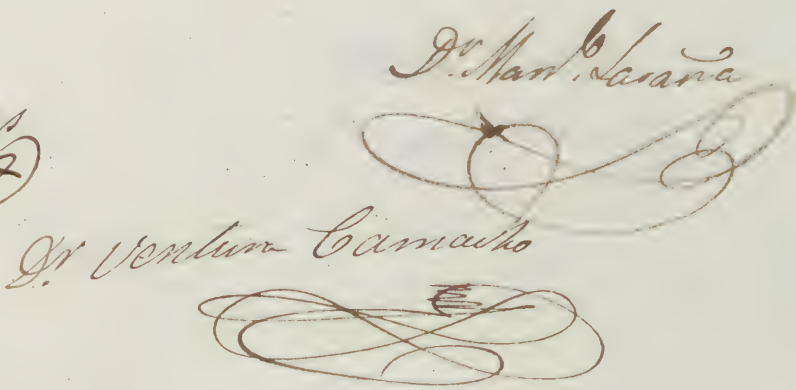 Dr. Manl. Laraña
Dr. Ventura Camacho